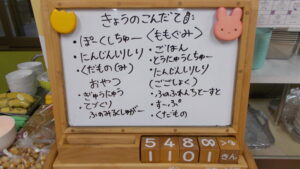 きょうのこんだて
・ぽーくしちゅー
・にんじんしりしり
・くだもの(み)
おやつ
・ぎゅうにゅう
・てづくり
ふのみるくしゅがー
〈ももぐみ〉
・ごはん
・とうにゅうしちゅー
・にんじんしりしり
ごごしょく
・ふのふれんちとーすと
・すーぷ
・くだもの
548
1101
さん